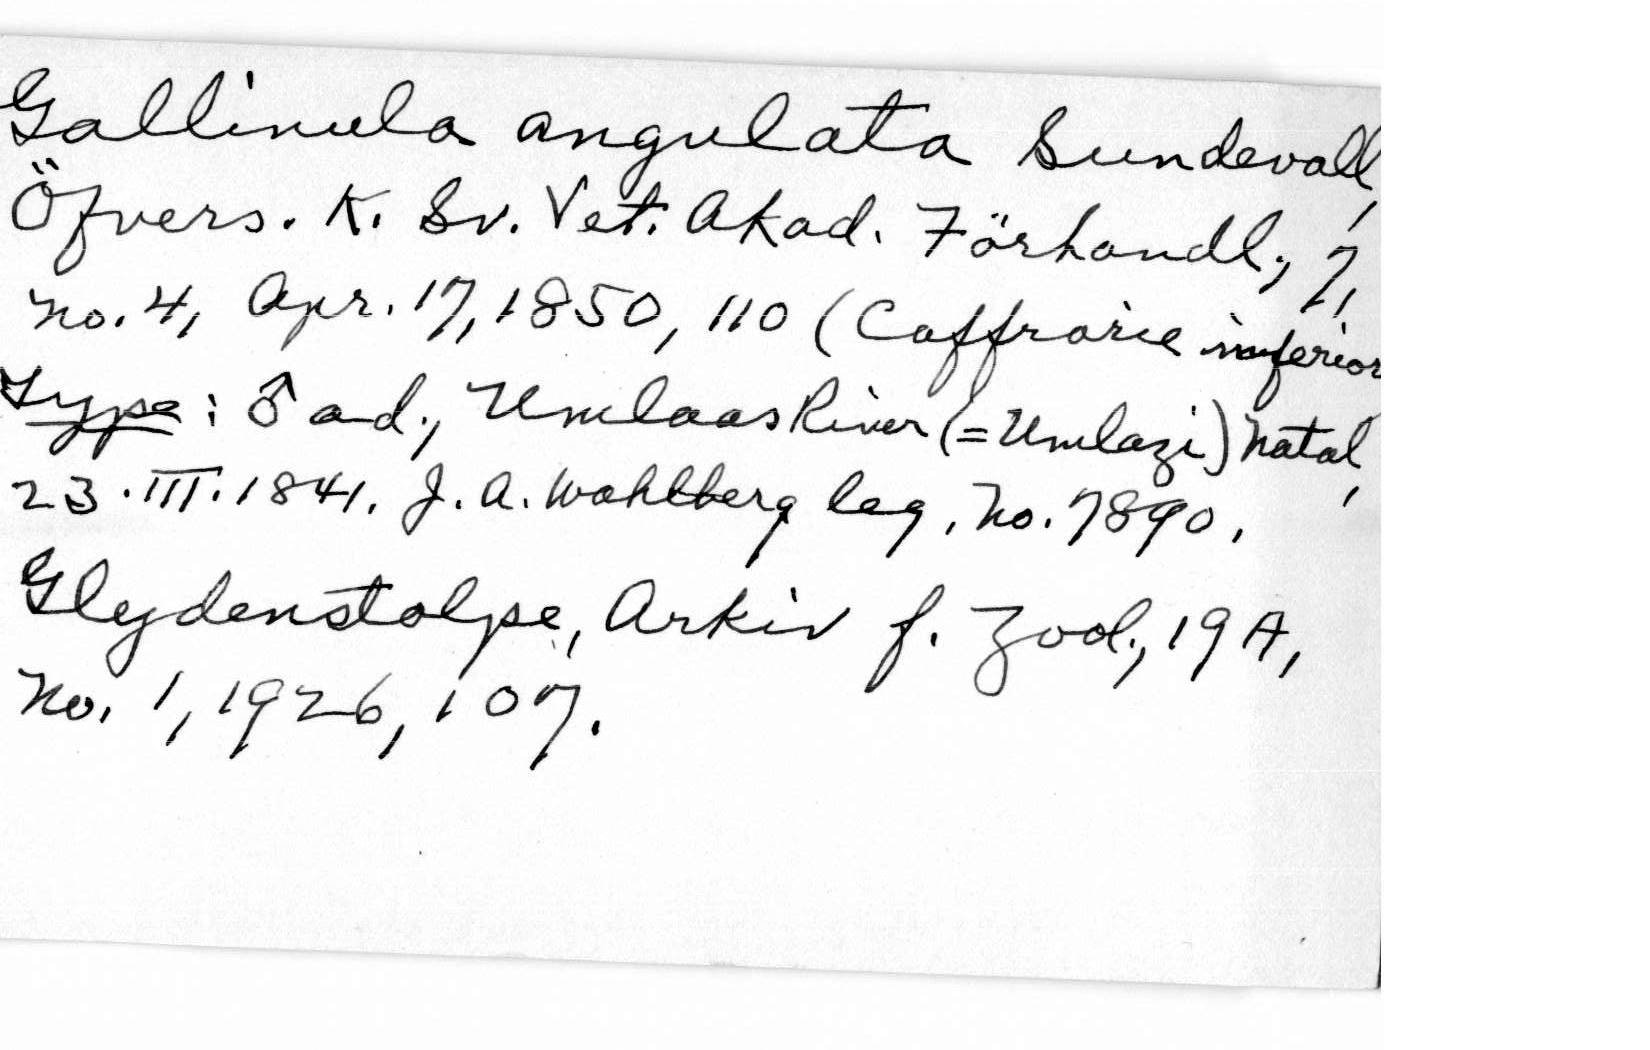 Gallinula angulata Sundevall,
Öfvers. K. Sv. Vet. Akad. Förhandl., 7,
no. 4, Apr. 17, 1850, 110 (Caffrarie inferior
Type: ♂ ad., Umlaas River (=Umlazi) Natal,
23.III.1841. J. A. Wahlberg leg, No. 7890.
Gleydenstolpe, Arkiv f. Zool., 19A,
No. 1, 1926, 107.